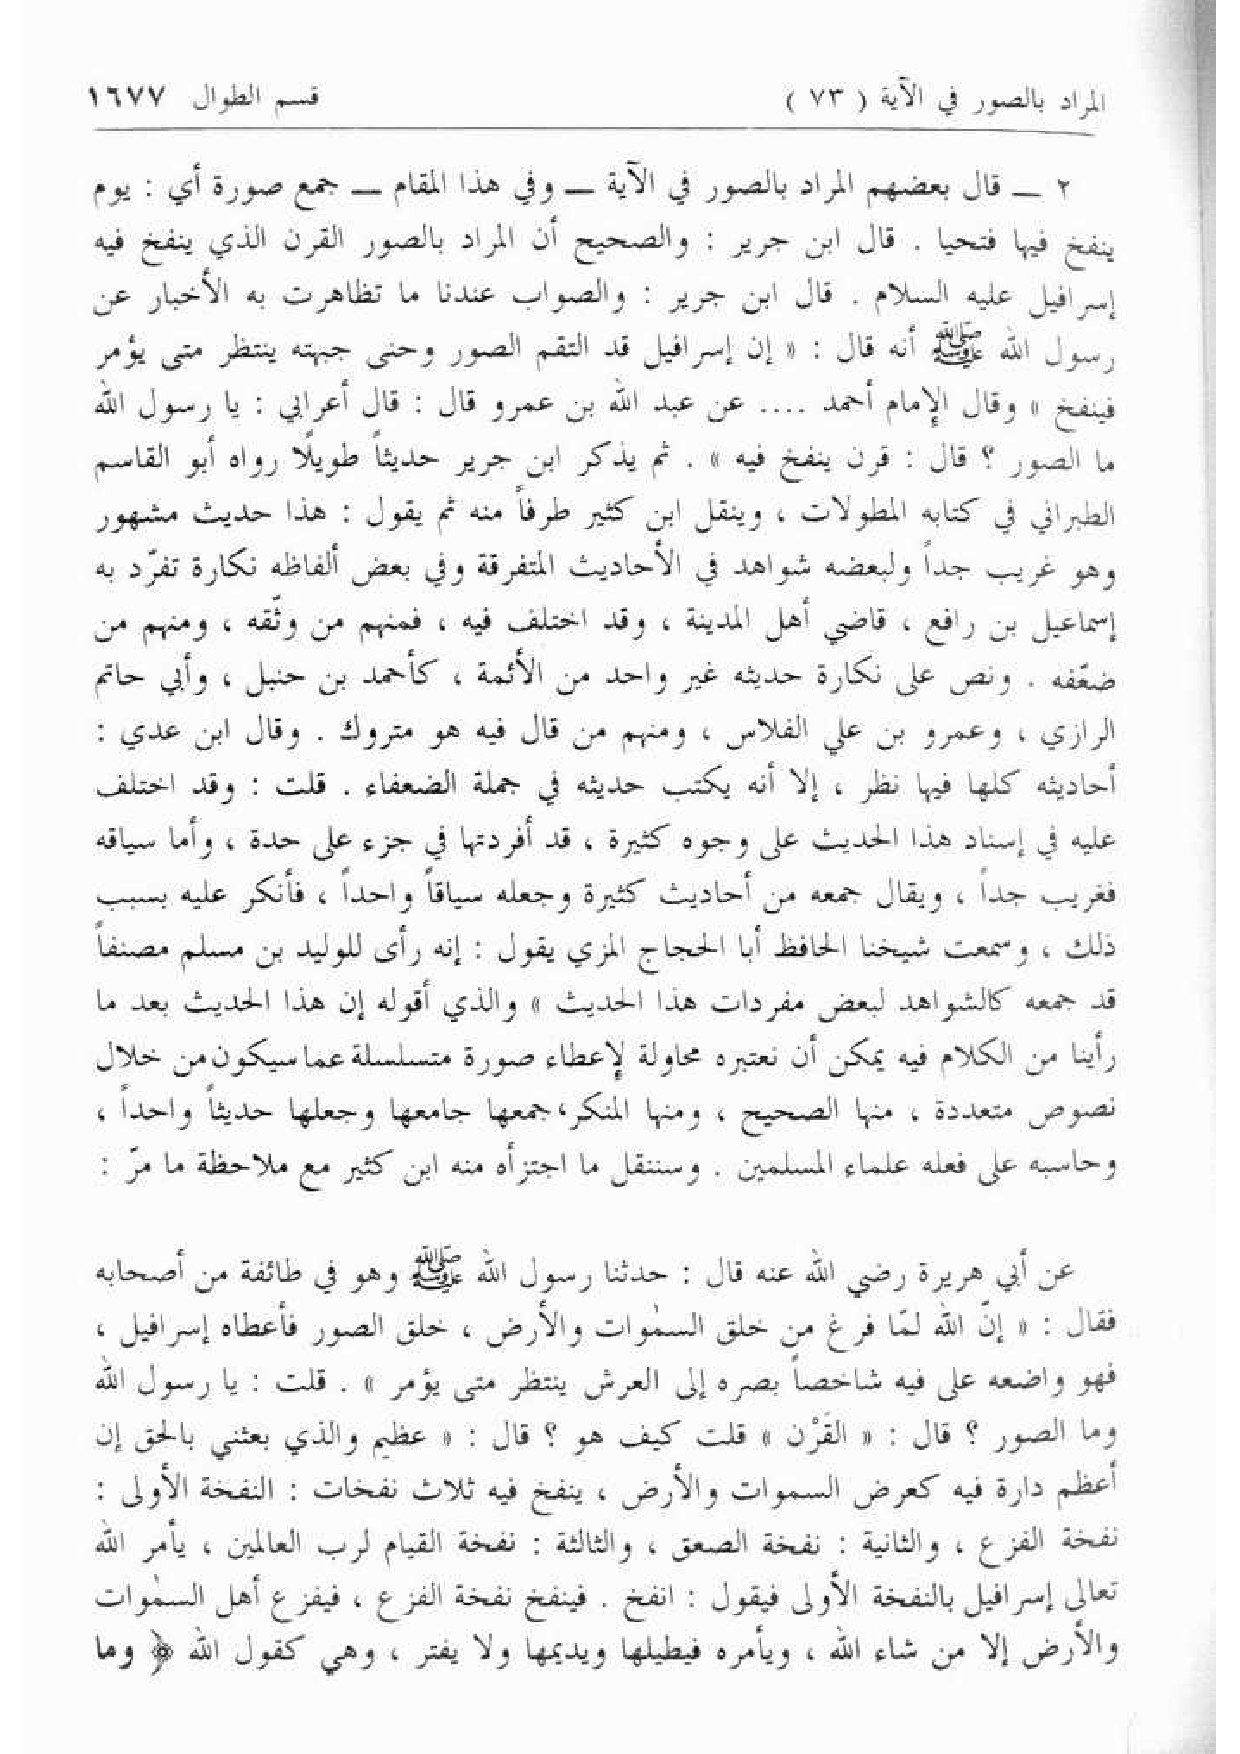 المراد بالصور في الآية ( ٧٣ ) قسم الطوال ١٦٧٧
٢ ــ قال بعضهم المراد بالصور في الآية ــ وفي هذا المقام ــ جمع صورة أي : يوم
ينفخ فيها فتحيا . قال ابن جرير : والصحيح أن المراد بالصور القرن الذي ينفخ فيه
إسرافيل عليه السلام . قال ابن جرير : والصواب عندنا ما تظاهرت به الأخبار عن
رسول الله ﷺ أنه قال : « إن إسرافيل قد التقم الصور وحنى جبهته ينتظر متى يؤمر
فينفخ » وقال الإمام أحمد .... عن عبد الله بن عمرو قال : قال أعرابي : يا رسول الله
ما الصور ؟ قال : قرن ينفخ فيه » . ثم يذكر ابن جرير حديثاً طويلًا رواه أبو القاسم
الطبراني في كتابه المطولات ، وينقل ابن كثير طرفاً منه ثم يقول : هذا حديث مشهور
وهو غريب جداً ولبعضه شواهد في الأحاديث المتفرقة وفي بعض ألفاظه نكارة تفرّد به
إسماعيل بن رافع ، قاضي أهل المدينة ، وقد اختلف فيه ، فمنهم من وثّقه ، ومنهم من
ضعّفه . ونص على نكارة حديثه غير واحد من الأئمة ، كأحمد بن حنبل ، وأبي حاتم
الرازي ، وعمرو بن علي الفلاس ، ومنهم من قال فيه هو متروك . وقال ابن عدي :
أحاديثه كلها فيها نظر ، إلا أنه يكتب حديثه في جملة الضعفاء . قلت : وقد اختلف
عليه في إسناد هذا الحديث على وجوه كثيرة ، قد أفردتها في جزء على حدة ، وأما سياقه
فغريب جداً ، ويقال جمعه من أحاديث كثيرة وجعله سياقاً واحداً ، فأنكر عليه بسبب
ذلك ، وسمعت شيخنا الحافظ أبا الحجاج المزي يقول : إنه رأى للوليد بن مسلم مصنفاً
قد جمعه كالشواهد لبعض مفردات هذا الحديث » والذي أقوله إن هذا الحديث بعد ما
رأينا من الكلام فيه يمكن أن نعتبره محاولة لإعطاء صورة متسلسلة عما سيكون من خلال
نصوص متعددة ، منها الصحيح ، ومنها المنكر، جمعها جامعها وجعلها حديثاً واحداً ،
وحاسبه على فعله علماء المسلمين . وسننقل ما اجتزأه منه ابن كثير مع ملاحظة ما مرّ :
عن أبي هريرة رضي الله عنه قال : حدثنا رسول الله ﷺ وهو في طائفة من أصحابه
فقال : « إنّ الله لمّا فرغ من خلق السمٰوات والأرض ، خلق الصور فأعطاه إسرافيل ،
فهو واضعه على فيه شاخصاً بصره إلى العرش ينتظر متى يؤمر » . قلت : يا رسول الله
وما الصور ؟ قال : « القَرْن » قلت كيف هو ؟ قال : « عظيم والذي بعثني بالحق إن
أعظم دارة فيه كعرض السموات والأرض ، ينفخ فيه ثلاث نفخات : النفخة الأولى :
نفخة الفزع ، والثانية : نفخة الصعق ، والثالثة : نفخة القيام لرب العالمين ، يأمر الله
تعالى إسرافيل بالنفخة الأولى فيقول : انفخ . فينفخ نفخة الفزع ، فيفزع أهل السمٰوات
والأرض إلا من شاء الله ، ويأمره فيطيلها ويديمها ولا يفتر ، وهي كقول الله ﴿ وما